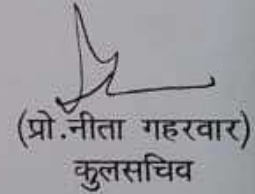 (प्रो.नीता गहरवार)
कुलसचिव